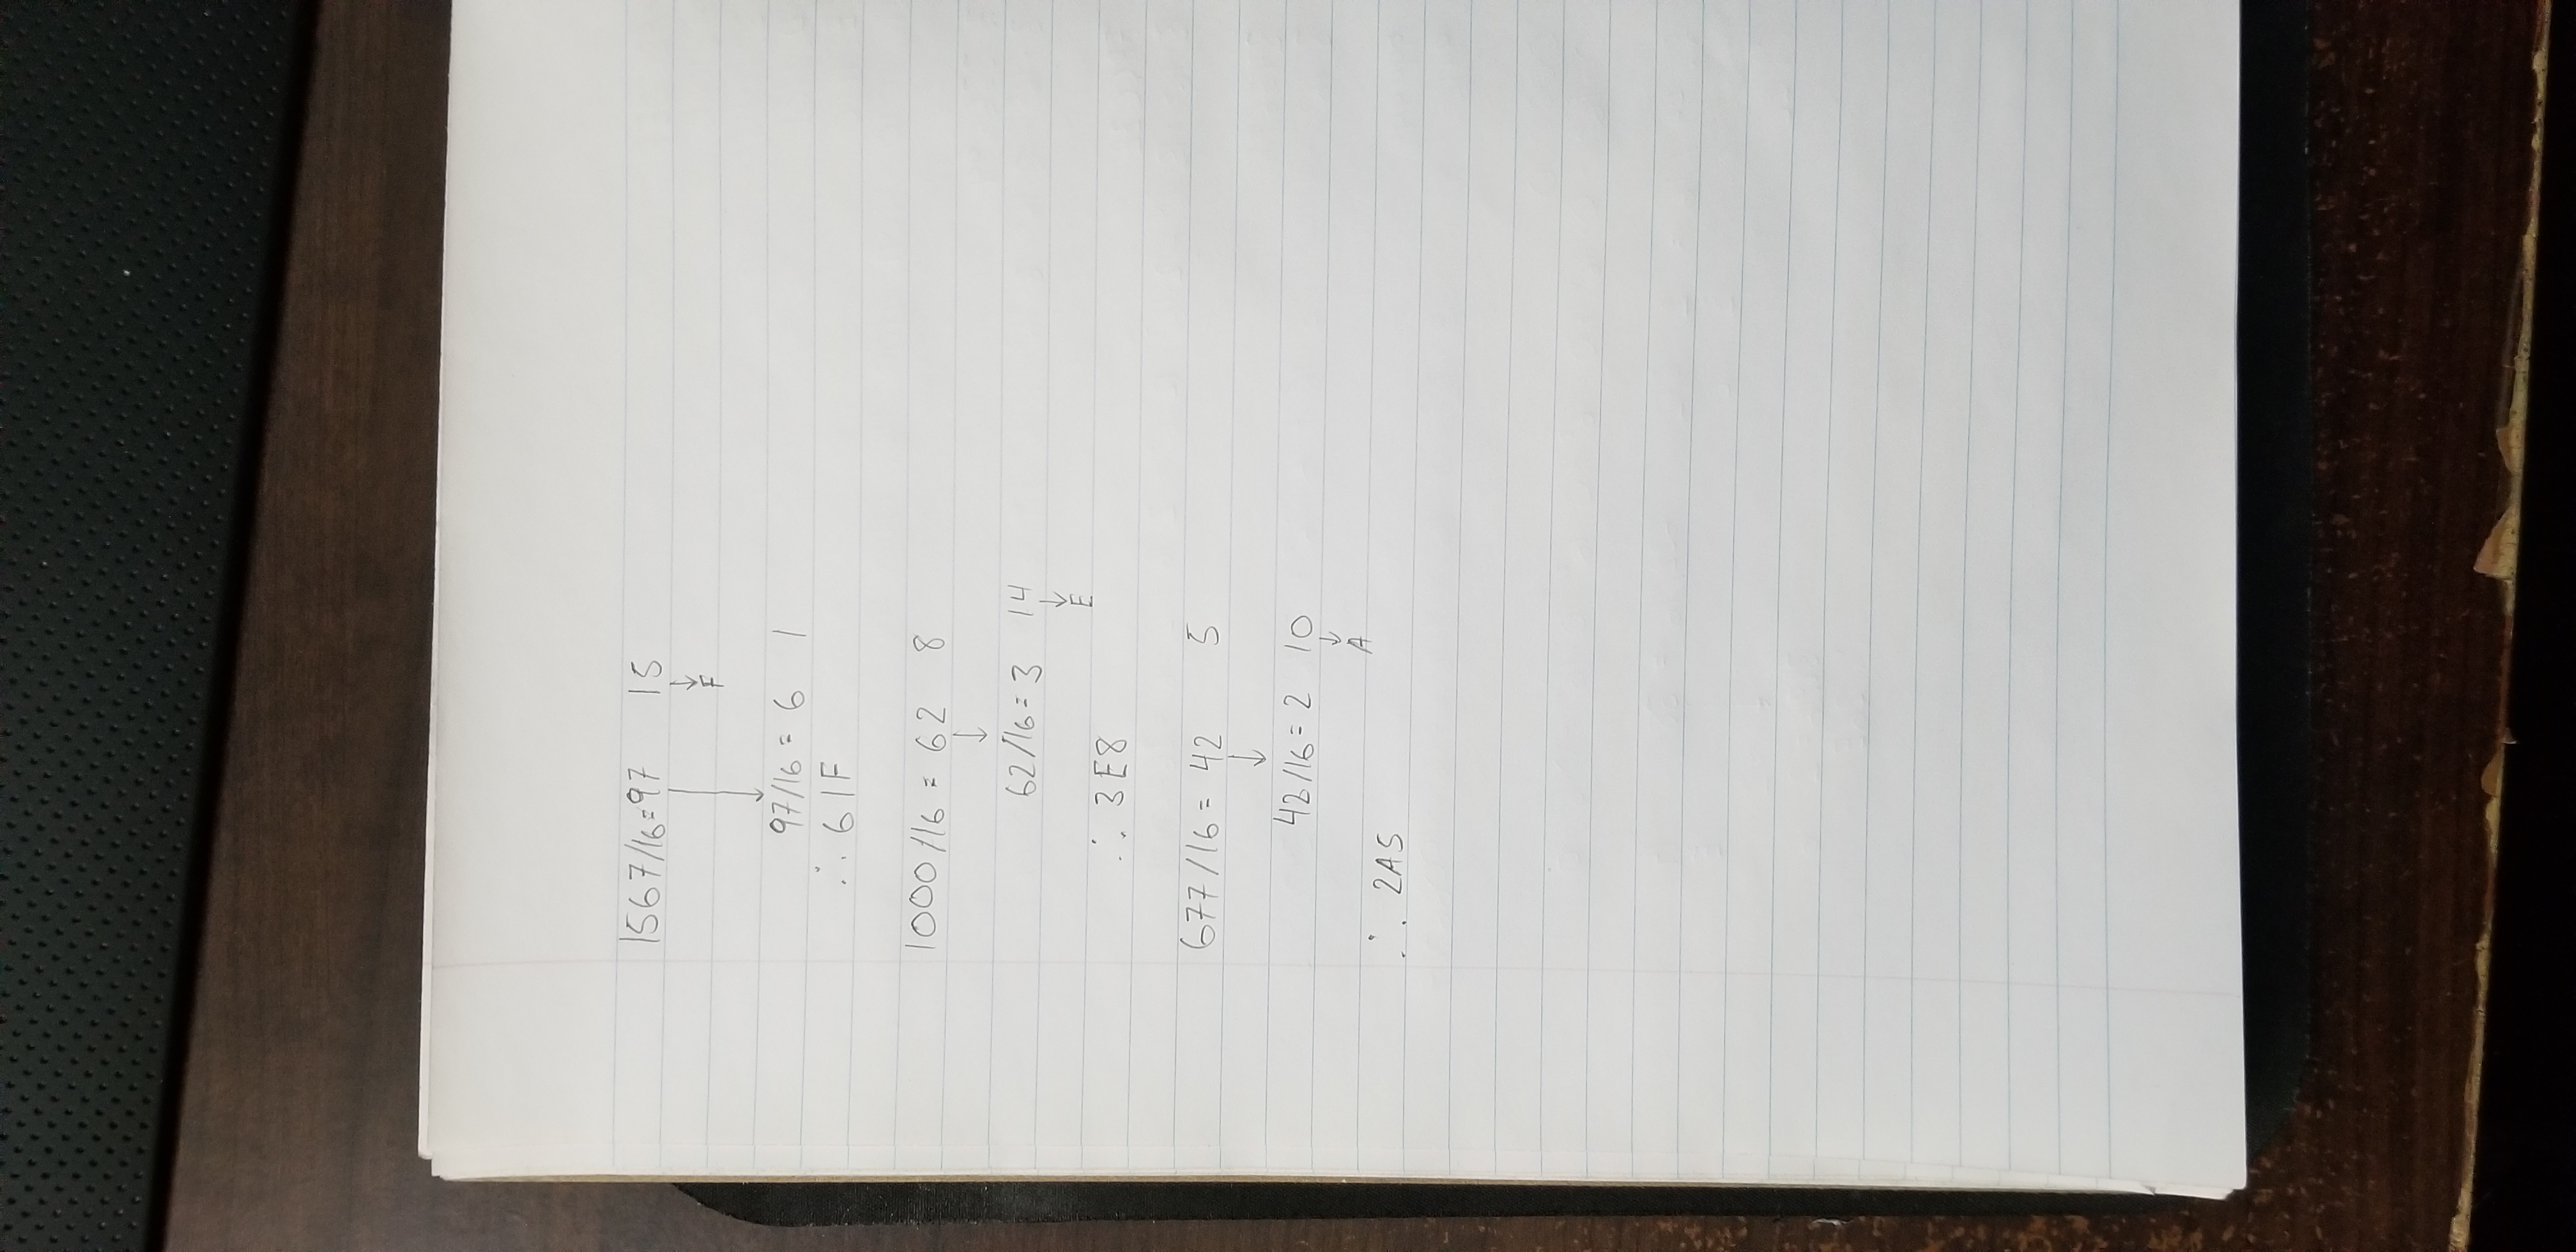 1567/16=97 15
↓
F
97/16 = 6 1
∴ 61F
1000/16 = 62 8
↓
62/16=3 14
↓
E
∴ 3E8
677/16= 42 5
↓
42/16=2 10
↓
A
∴ 2A5